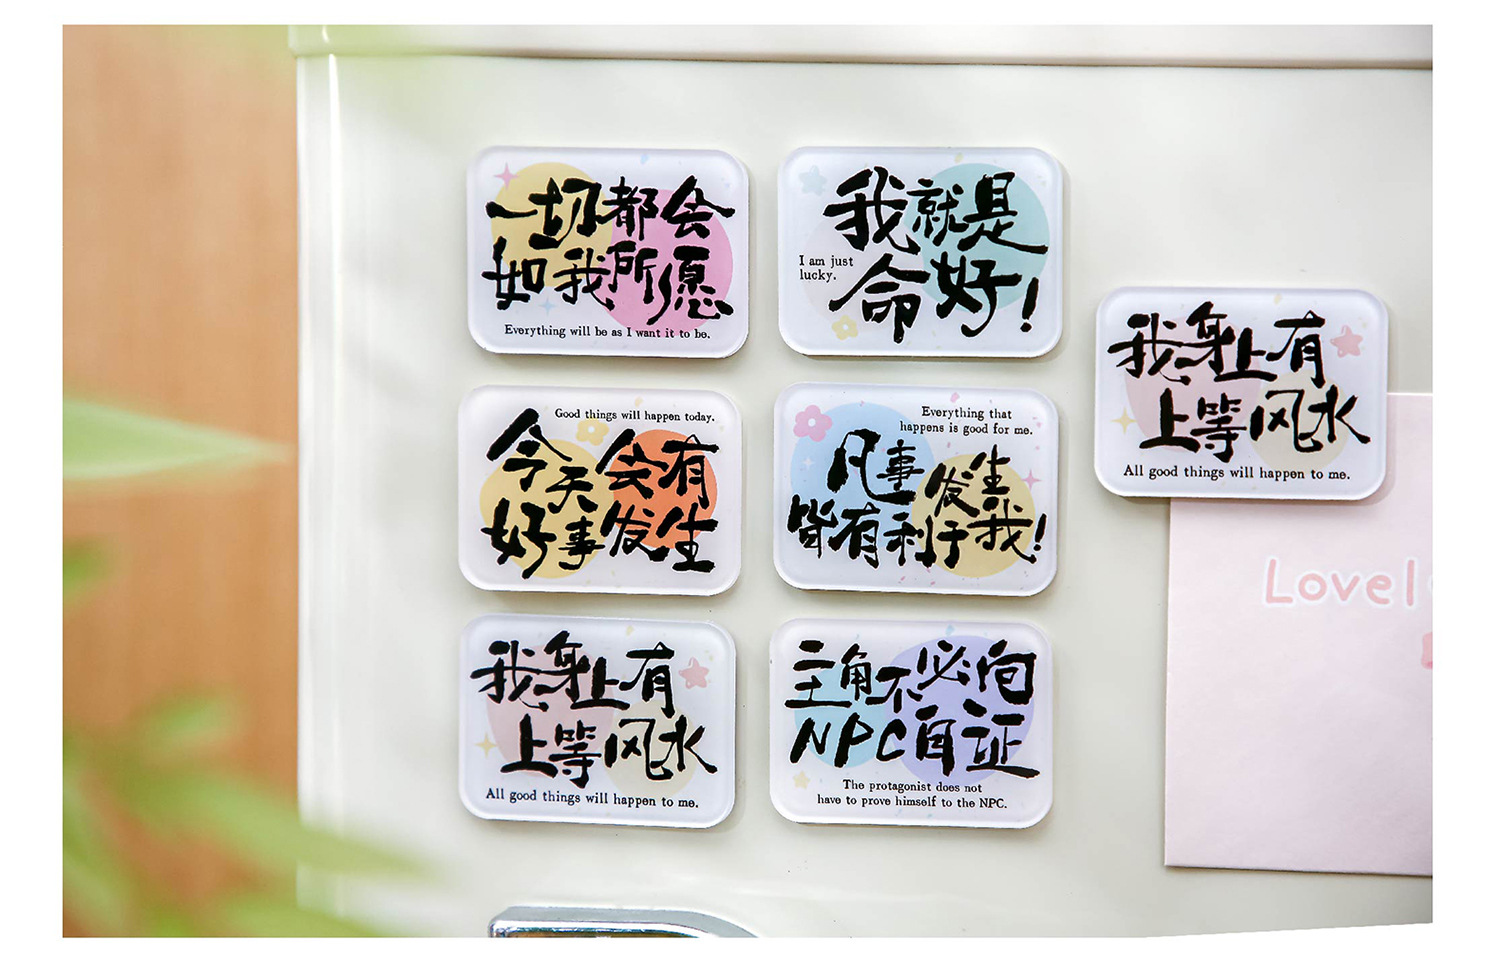 一切都会
如我所愿
Everything will be as I want it to be.
我就是
I am just
lucky.
命好!
Good things will happen today.
今天会有
好事发生
Everything that
happens is good for me.
凡事发生
皆有利于我!
我身上有
上等风水
All good things will happen to me.
主角不必向
NPC自证
The protagonist does not
have to prove himself to the NPC.
我身上有
上等风水
All good things will happen to me.
Lovel